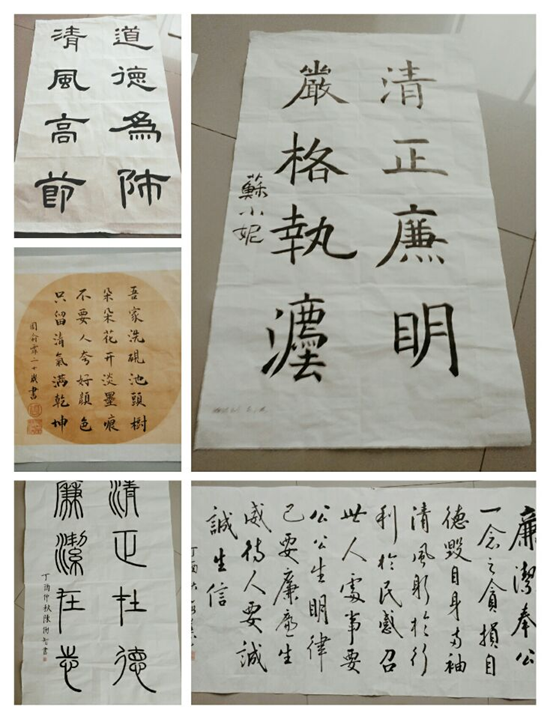 道德為師
清風高節
清正廉明
嚴格執灋
蘇小妮
吾家洗硯池頭樹
朵朵花开淡墨痕
不要人夸好顏色
只留清氣滿乾坤
二十歲書
清正在德
廉潔在志
丁酉仲秋陳書
廉潔奉公
一念之貪損自
德毀自身兩袖
清風躬於行
利於民感召
世人處事要
公公生明律
己要廉廉生
威待人要誠
誠生信
丁酉